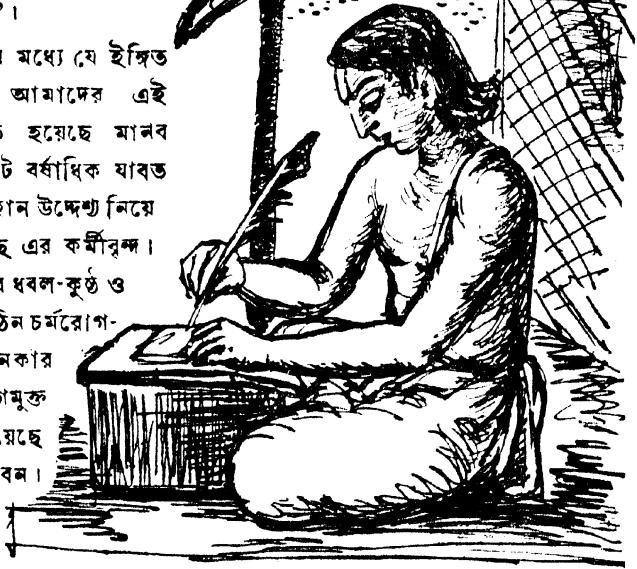 ।
মধ্যে যে ইঙ্গিত
আমাদের এই
হয়েছে মানব
বর্ষাধিক যাবত
উদ্দেশ্য নিয়ে
এর কর্মীবৃন্দ।
ধবল-কুষ্ঠ ও
চর্মরোগ-
নকার
মুক্ত
য়েছে
বন।